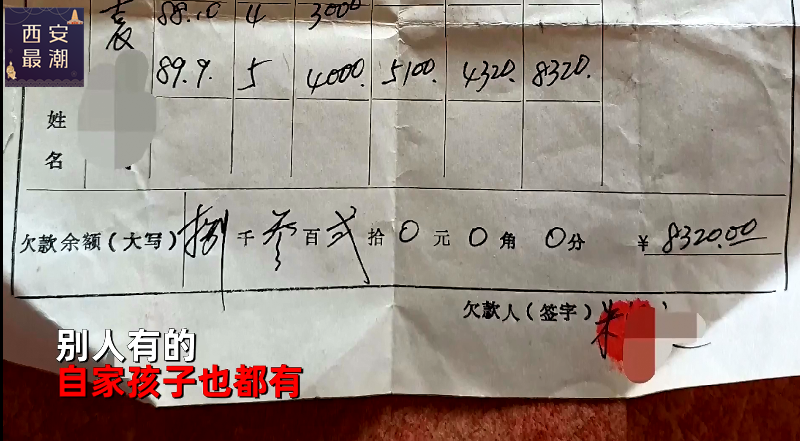 西安
最潮
袁 88.10 4 3000
89.9. 5 4000. 5100. 4320. 8320.
姓
名
欠款余额(大写)捌千叁百贰拾0元0角0分 ¥8320.00
欠款人(签字)朱
别人有的
自家孩子也都有